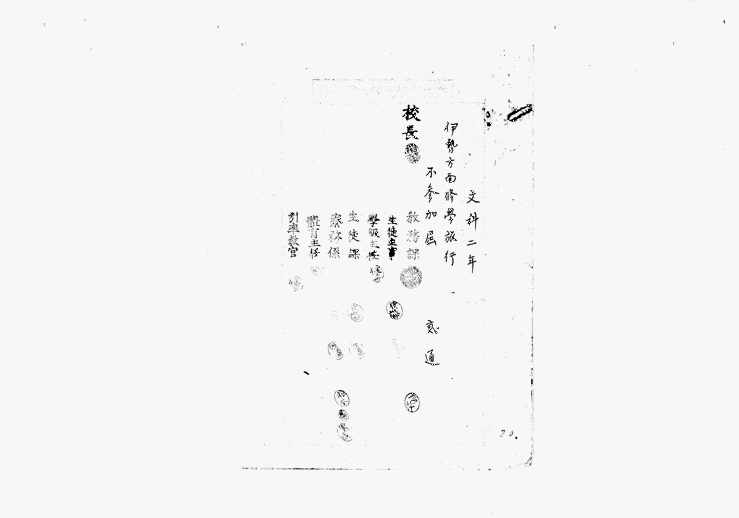 文科二年
伊勢方面修學旅行
不参加届 貳通
校長
教務課
生徒主事
學級主任
生徒課
寮務係
體育主任
引率教官